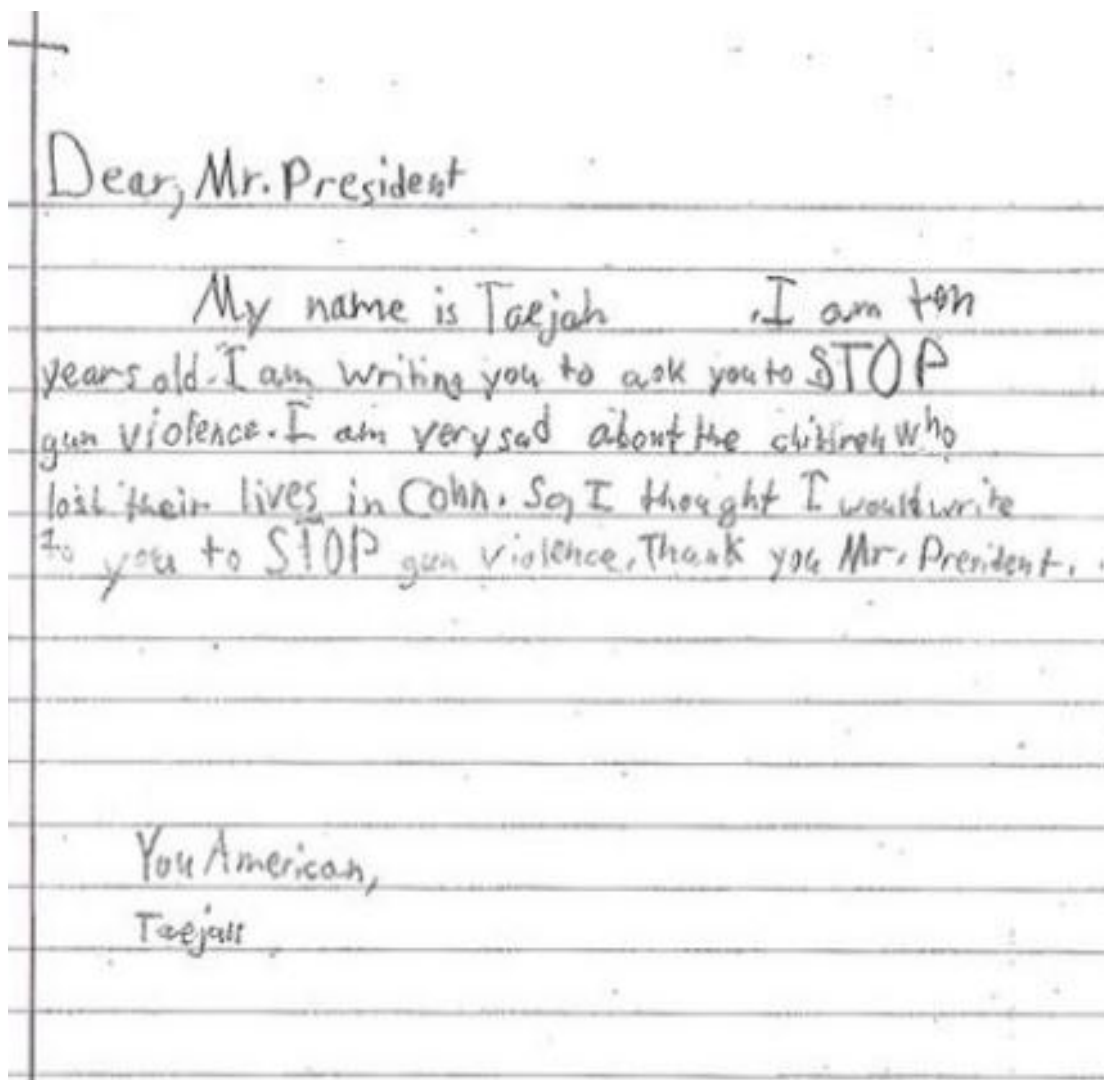 Dear, Mr. President
My name is Taejah .I am ten
years old. I am writing you to ask you to STOP
gun violence. I am very sad about the chilireh who
lost their lives in Conn. So, I thought I would write
to you to STOP gun violence. Thank you Mr. President.
You American,
Taejah